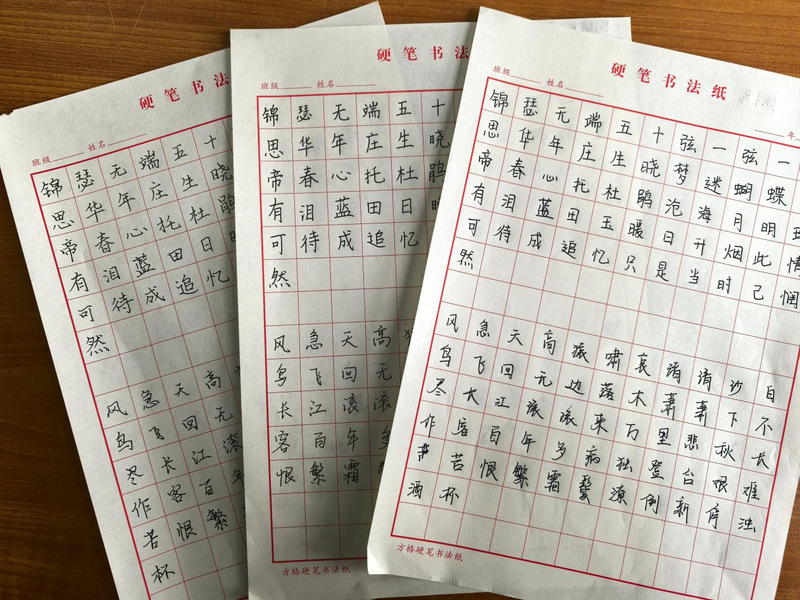 硬笔书法
班级 姓名
锦瑟无端五十
思华年庄生晓
帝春心托杜鹃
有泪蓝田日
可待成追忆
然
风急天高
鸟飞回无
尽长江滚
作客百年
苦恨繁
杯
硬笔书法
班级 姓名
锦瑟无端五十
思华年庄生晓
帝春心托杜鹃
有泪蓝田日
可待成追忆
然
风急天高猿
鸟飞回无
长江滚滚
客百年多
恨繁霜
方格硬笔书法纸
硬笔书法纸
班级 姓名 年
锦瑟无端五十弦一弦一
思华年庄生晓梦迷蝴蝶
帝春心托杜鹃沧海月明
有泪蓝田玉暖日升烟此情
可待成追忆只是当时己惘
然
风急天高猿啸哀清清沙自
鸟飞回无边落木萧萧下不
尽长江滚滚来万里悲秋长
作客百年多病独登台恨难
苦恨繁霜鬓潦例新停浊
酒杯
方格硬笔书法纸